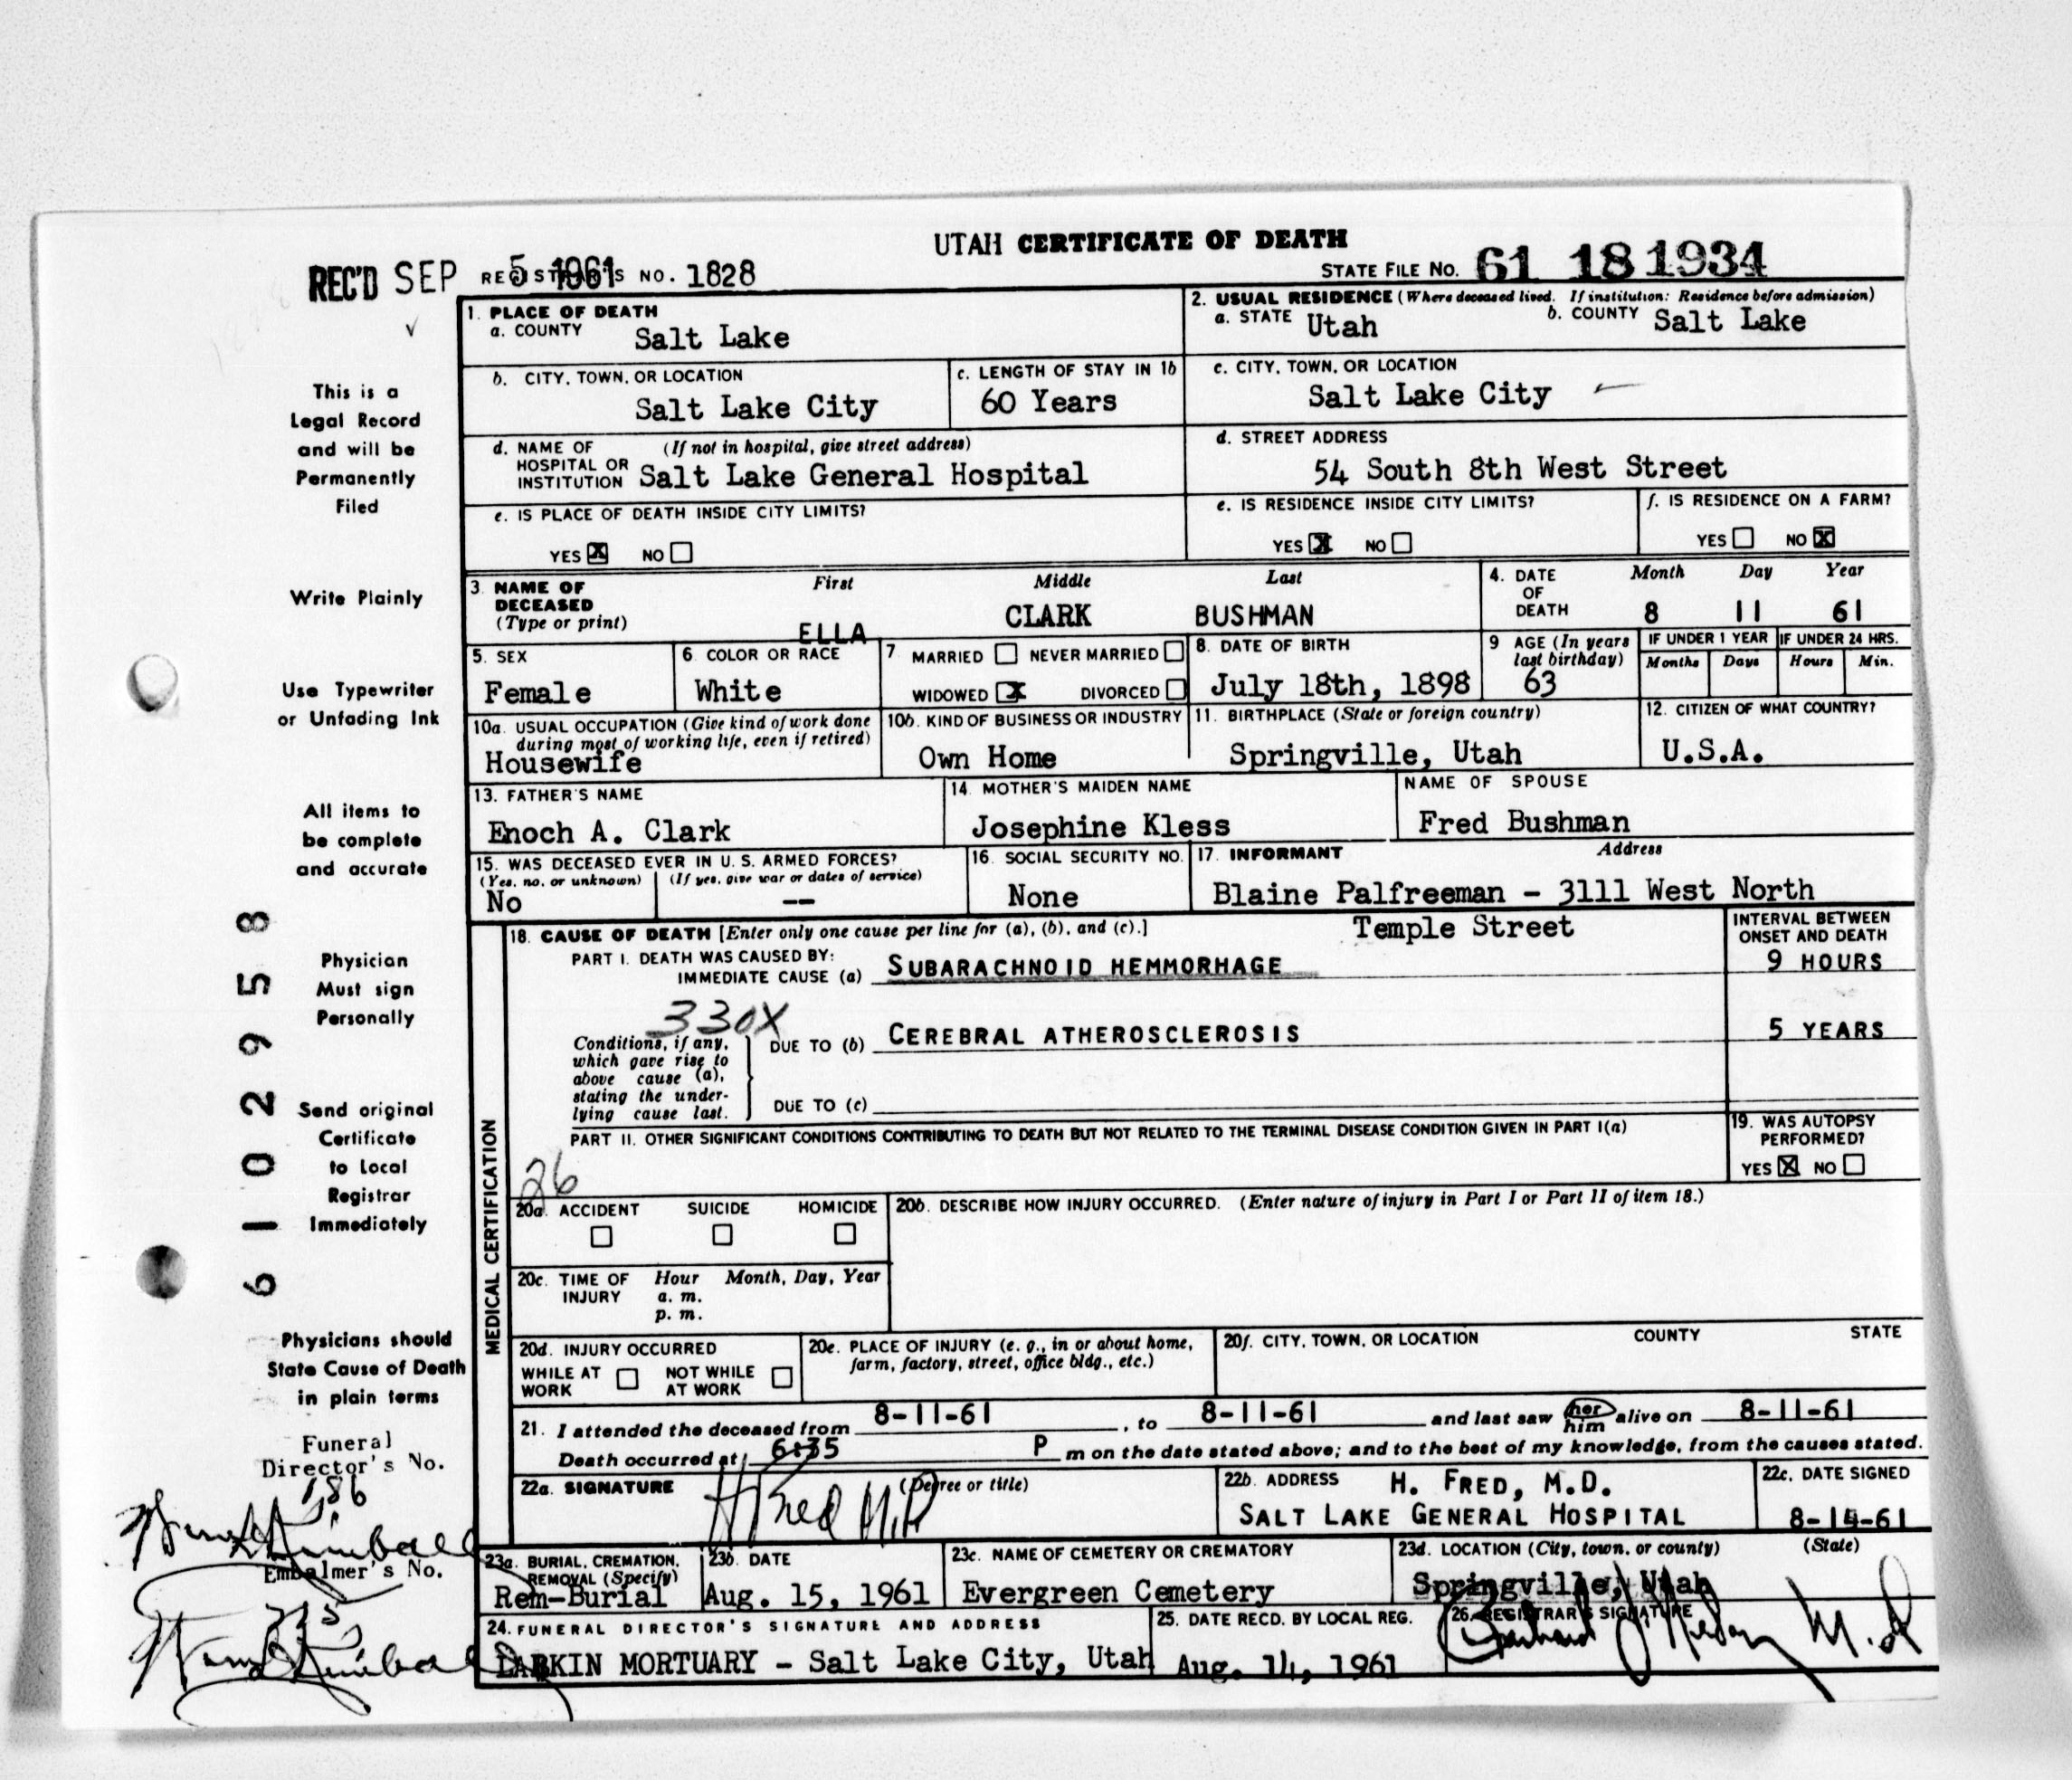 UTAH CERTIFICATE OF DEATH
REC'D SEP 5 1961 REGISTRAR'S NO. 1828
STATE FILE NO. 61 18 1934
1. PLACE OF DEATH
a. COUNTY Salt Lake
2. USUAL RESIDENCE (Where deceased lived. If institution: Residence before admission)
a. STATE Utah b. COUNTY Salt Lake
b. CITY, TOWN, OR LOCATION
Salt Lake City
c. LENGTH OF STAY IN 1b
60 Years
c. CITY, TOWN, OR LOCATION
Salt Lake City
d. NAME OF HOSPITAL OR INSTITUTION (If not in hospital, give street address)
Salt Lake General Hospital
d. STREET ADDRESS
54 South 8th West Street
e. IS PLACE OF DEATH INSIDE CITY LIMITS?
YES X NO
e. IS RESIDENCE INSIDE CITY LIMITS?
YES X NO
f. IS RESIDENCE ON A FARM?
YES NO X
3 NAME OF DECEASED (Type or print)
First Middle Last
ELLA CLARK BUSHMAN
4. DATE OF DEATH
Month Day Year
8 11 61
5. SEX
Female
6. COLOR OR RACE
White
7 MARRIED NEVER MARRIED
WIDOWED X DIVORCED
8. DATE OF BIRTH
July 18th, 1898
9 AGE (In years last birthday)
63
IF UNDER 1 YEAR IF UNDER 24 HRS.
Months Days Hours Min.
10a. USUAL OCCUPATION (Give kind of work done
during most of working life, even if retired)
Housewife
10b. KIND OF BUSINESS OR INDUSTRY
Own Home
11. BIRTHPLACE (State or foreign country)
Springville, Utah
12. CITIZEN OF WHAT COUNTRY?
U.S.A.
13. FATHER'S NAME
Enoch A. Clark
14. MOTHER'S MAIDEN NAME
Josephine Kless
NAME OF SPOUSE
Fred Bushman
15. WAS DECEASED EVER IN U. S. ARMED FORCES?
(Yes, no, or unknown) (If yes, give war or dates of service)
No --
16. SOCIAL SECURITY NO.
None
17. INFORMANT Address
Blaine Palfreeman - 3111 West North
Temple Street
MEDICAL CERTIFICATION
18. CAUSE OF DEATH [Enter only one cause per line for (a), (b), and (c).]
INTERVAL BETWEEN
ONSET AND DEATH
PART I. DEATH WAS CAUSED BY:
IMMEDIATE CAUSE (a) SUBARACHNOID HEMMORHAGE 9 HOURS
330X
Conditions, if any,
which gave rise to
above cause (a),
stating the under-
lying cause last.
DUE TO (b) CEREBRAL ATHEROSCLEROSIS 5 YEARS
DUE TO (c)
PART II. OTHER SIGNIFICANT CONDITIONS CONTRIBUTING TO DEATH BUT NOT RELATED TO THE TERMINAL DISEASE CONDITION GIVEN IN PART I(a)
26
19. WAS AUTOPSY
PERFORMED?
YES X NO
20a. ACCIDENT SUICIDE HOMICIDE
20b. DESCRIBE HOW INJURY OCCURRED. (Enter nature of injury in Part I or Part II of item 18.)
20c. TIME OF INJURY Hour Month, Day, Year
a. m.
p. m.
20d. INJURY OCCURRED
WHILE AT WORK NOT WHILE AT WORK
20e. PLACE OF INJURY (e. g., in or about home,
farm, factory, street, office bldg., etc.)
20f. CITY, TOWN, OR LOCATION COUNTY STATE
21. I attended the deceased from 8-11-61, to 8-11-61 and last saw her him alive on 8-11-61
Death occurred at 6:35 P m on the date stated above; and to the best of my knowledge, from the causes stated.
22a. SIGNATURE (Degree or title)
H Fred M.D
22b. ADDRESS H. FRED, M.D.
SALT LAKE GENERAL HOSPITAL
22c. DATE SIGNED
8-14-61
23a. BURIAL, CREMATION,
REMOVAL (Specify)
Rem-Burial
23b. DATE
Aug. 15, 1961
23c. NAME OF CEMETERY OR CREMATORY
Evergreen Cemetery
23d. LOCATION (City, town, or county) (State)
Springville, Utah
24. FUNERAL DIRECTOR'S SIGNATURE AND ADDRESS
LARKIN MORTUARY - Salt Lake City, Utah
25. DATE RECD. BY LOCAL REG.
Aug. 14, 1961
26. REGISTRAR'S SIGNATURE
M.d
This is a
Legal Record
and will be
Permanently
Filed
Write Plainly
Use Typewriter
or Unfading Ink
All items to
be complete
and accurate
Physician
Must sign
Personally
Send original
Certificate
to Local
Registrar
Immediately
Physicians should
State Cause of Death
in plain terms
6102958
Funeral
Director's No.
186
Embalmer's No.